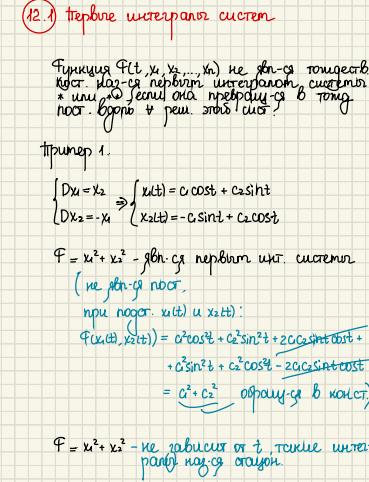 12.1 Первые интегралы систем
Функция F(t, x₁, x₂, ..., xₙ) не явл-ся тождеств.
пост. наз-ся первым интегралом системы
* или *, если она превращ-ся в тожд.
пост. вдоль ∀ реш. этой сист.
Пример 1.
{ Dx₁ = x₂ ⇒ { x₁(t) = c₁cost + c₂sint
{ Dx₂ = -x₁ { x₂(t) = -c₁sint + c₂cost
F = x₁² + x₂² - явл-ся первым инт. системы
(не явл-ся пост,
при подст. x₁(t) и x₂(t):
F(x₁(t), x₂(t)) = c₁²cos²t + c₂²sin²t + 2c₁c₂sintcost +
+ c₁²sin²t + c₂²cos²t - 2c₁c₂sintcost
= c₁² + c₂² обращ-ся в конст.)
F = x₁² + x₂² - не зависит от t, такие интег-
ралы наз-ся стацион.